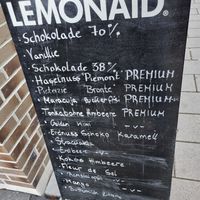 LEMONAID®
Schokolade 70%
Vanille
Schokolade 38%
Haselnuss Piemont PREMIUM
Pistazie "Bronte" PREMIUM
Maracuja - PREMIUM
Tonkabohne Himbeere PREMIUM
Golden
Erdnuss Schoko Karamell
Stracciatella
Erdbeer
Kokos Himbeere
Fleur de Sel
Mango